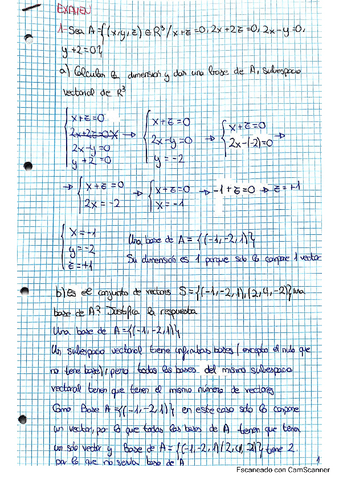 EXAMEN
1-Sea A={(x,y,z)∈R³/x+z=0, 2x+2z=0, 2x-y=0,
y+2=0}
a) Calcular la dimensión y dar una base de A, subespacio
vectorial de R³
{x+z=0 {x+z=0 {x+z=0
2x+2z=0 x → 2x-y=0 → 2x-(-2)=0 →
2x-y=0 y=-2
y+2=0
→ {x+z=0 → {x+z=0 → -1+z=0 → z=+1
2x=-2 x=-1
{x=-1
y=-2 Una base de A={(-1,-2,1)}
z=+1 Su dimensión es 1 porque solo lo compone 1 vector
b) es el conjunto de vectores S={(-1,-2,1),(2,4,-2)} una
base de A? Justifica la respuesta.
Una base de A={(-1,-2,1)}
Un subespacio vectorial tiene infinitas bases (excepto el nulo que
no tiene base), pero todas las bases del mismo subespacio
vectorial tienen que tener el mismo número de vectores
Como Base A={(-1,-2,1)} en este caso solo lo compone
un vector, por lo que todas las bases de A tienen que tener
un solo vector y Base de A={(-1,-2,1)(2,4,2)} tiene 2
por lo que no sería base de A
1
Escaneado con CamScanner